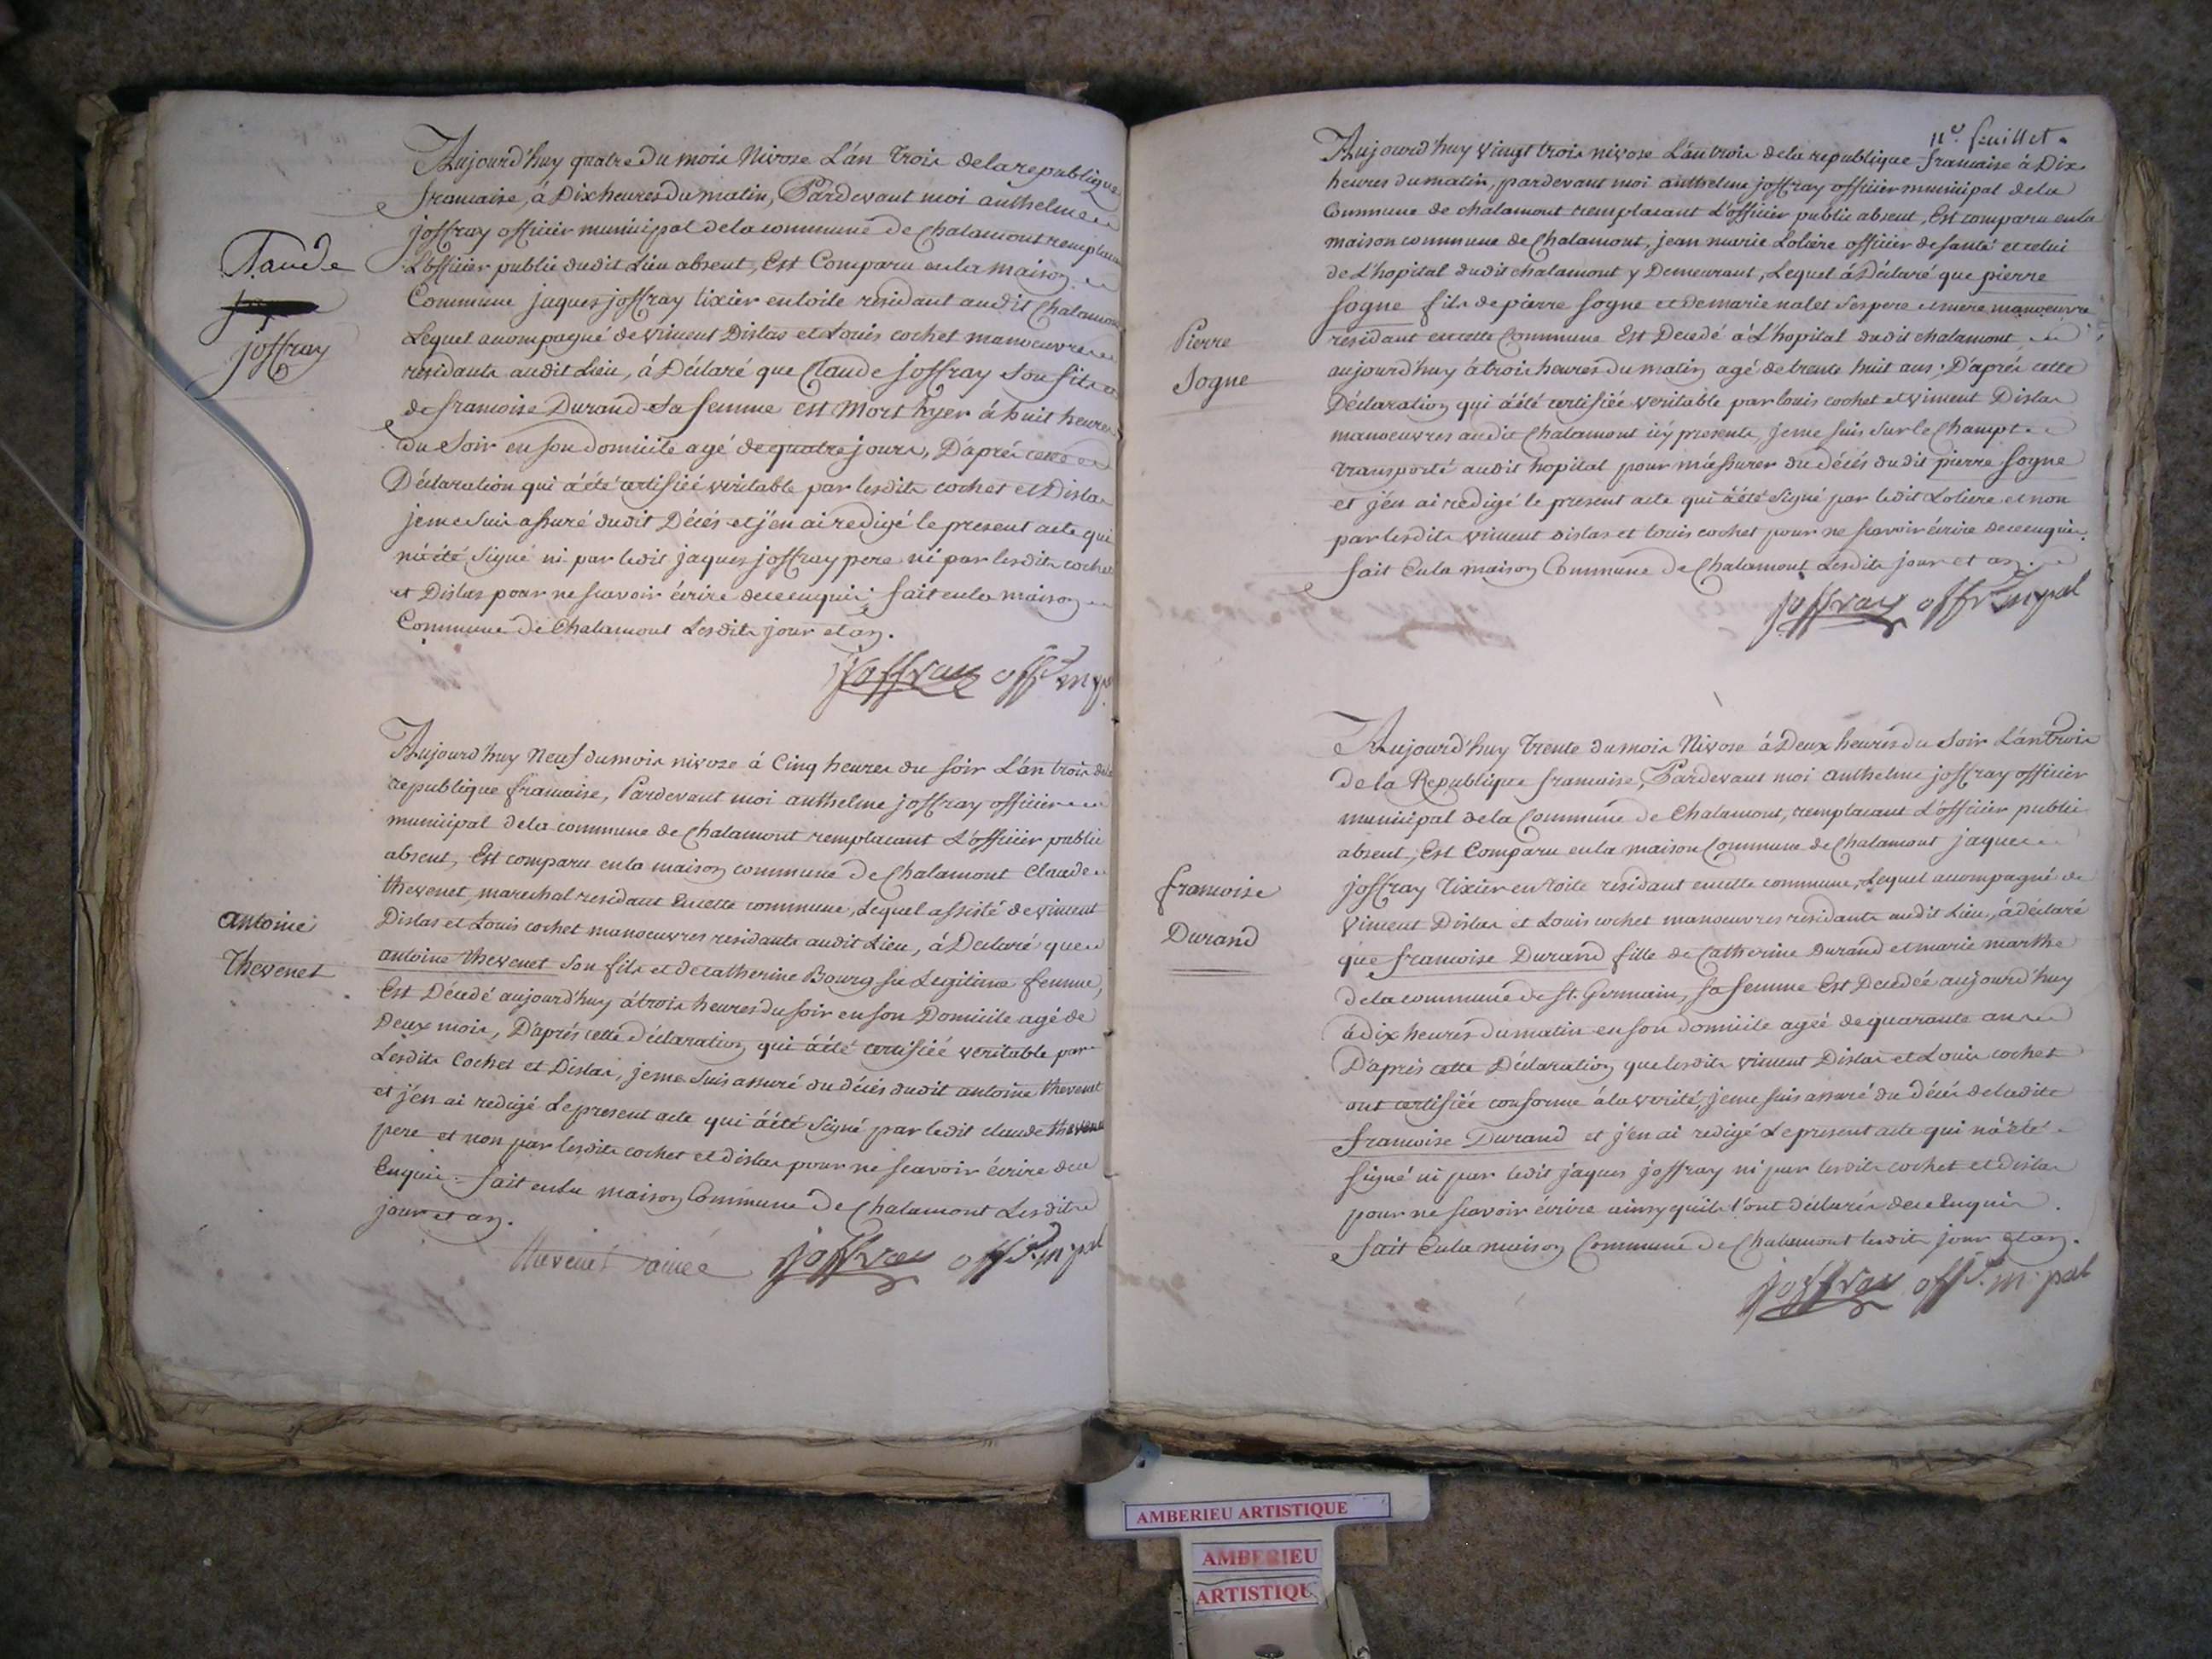 Claude
joffray
Aujourd'huy quatre du mois Nivose L'an trois de la republique
francaise, à Dix heures du matin, Pardevant moi anthelme
joffray officier municipal de la commune de Chalamont remplacant
L'officier public dudit Lieu absent, Est Comparu en la maison
Commune jaques joffray tixier en toile residant audit Chalamont
Lequel accompagné de vincent Dislas et Louis cochet manoeuvres
residants audit Lieu, à Déclaré que Claude joffray son fils et
de francoise Durand sa femme est mort hyer à huit heures
du Soir en son domicile agé de quatre jours, D'aprés cette
Déclaration qui à été certifiéé veritable par lesdits cochet et Dislas
je me suis assuré dudit Décés et j'en ai redigé le present acte qui
n'à été signé ni par ledit jaques joffray pere ni par lesdits cochet
et Dislas pour ne scavoir écrire de ce enquis. fait en la maison
Commune de Chalamont Lesdits jour et an.
joffray offr. mpal
antoine
Thevenet
Aujourd'huy Neuf du mois nivose à Cinq heures du soir L'an trois de la
republique francaise, Pardevant moi anthelme joffray officier
municipal de la commune de Chalamont remplacant L'officier public
absent, Est comparu en la maison commune de Chalamont Claude
thevenet, marechal residant En cette commune, Lequel assisté de vincent
Dislas et Louis cochet manoeuvres residants audit Lieu, à Declaré que
antoine thevenet son fils et de catherine Bourg sa Legitime femme,
Est Décedé aujourd'huy à trois heures du soir en son Domicile agé de
Deux mois, D'aprés cette déclaration qui à été certifiéé veritable par
Lesdits Cochet et Dislas, je me suis assuré du décés dudit antoine thevenet
et j'en ai redigé Le present acte qui à été Signé par ledit claude thevenet
pere et non par lesdits cochet et dislas pour ne scavoir écrire de ce
Enquis. fait en la maison Commune de Chalamont Lesdits
jour et an.
thevenet joffray offr. mpal
11e. feuillet.
Pierre
Sogne
Aujourd'huy vingt trois nivose L'an trois de la republique francaise à Dix
heures du matin, pardevant moi anthelme joffray officier municipal de la
Commune de chalamont remplacant L'officier public absent, Est comparu en la
maison commune de Chalamont, jean marie Loliere officier de santé et celui
de L'hopital dudit chalamont y Demeurant, Lequel à Déclaré que pierre
sogne fils de pierre sogne et de marie nalet ses pere et mere manoeuvre
residant en cette Commune Est Decedé à L'hopital dudit chalamont
aujourd'huy à trois heures du matin agé de trente huit ans. D'aprés cette
Déclaration qui à été certifiéé veritable par louis cochet et vincent Dislas
manoeuvres audit Chalamont icy presents, je me suis sur le Champt
transporté audit hopital pour m'assurer du décés dudit pierre sogne
et j'en ai redigé le present acte qui à été signé par ledit Loliere et non
par lesdits vincent dislas et louis cochet pour ne scavoir écrire de ce enquis.
fait En la maison Commune de Chalamont Lesdits jour et an.
joffray offr. mpal
francoise
Durand
Aujourd'huy Trente du mois Nivose à Deux heures du Soir L'an trois
de la Republique francaise, Pardevant moi anthelme joffray officier
municipal de la Commune de Chalamont, remplacant L'officier public
absent, Est Comparu en la maison Commune de Chalamont jaques
joffray Tixier en toile residant en cette commune, Lequel accompagné de
vincent Dislas et Louis cochet manoeuvres residants audit Lieu, à déclaré
que francoise Durand fille de Catherine Durand et marie marthe
de la commune de St. Germain, sa femme Est Decedéé aujourd'huy
à dix heures du matin en son domicile agéé de quarante ans
D'aprés cette Déclaration que lesdits vincent Dislas et Louis cochet
ont certifiéé conforme à la verité, je me suis assuré du décés de ladite
francoise Durand et j'en ai redigé Le present acte qui n'à été
signé ni par ledit jaques joffray ni par lesdits cochet et dislas
pour ne scavoir écrire ainsy qu'ils l'ont déclarés de ce Enquis.
fait En la maison Commune de Chalamont lesdits jour et an.
joffray offr. m.pal
AMBERIEU ARTISTIQUE
AMBERIEU
ARTISTIQUE